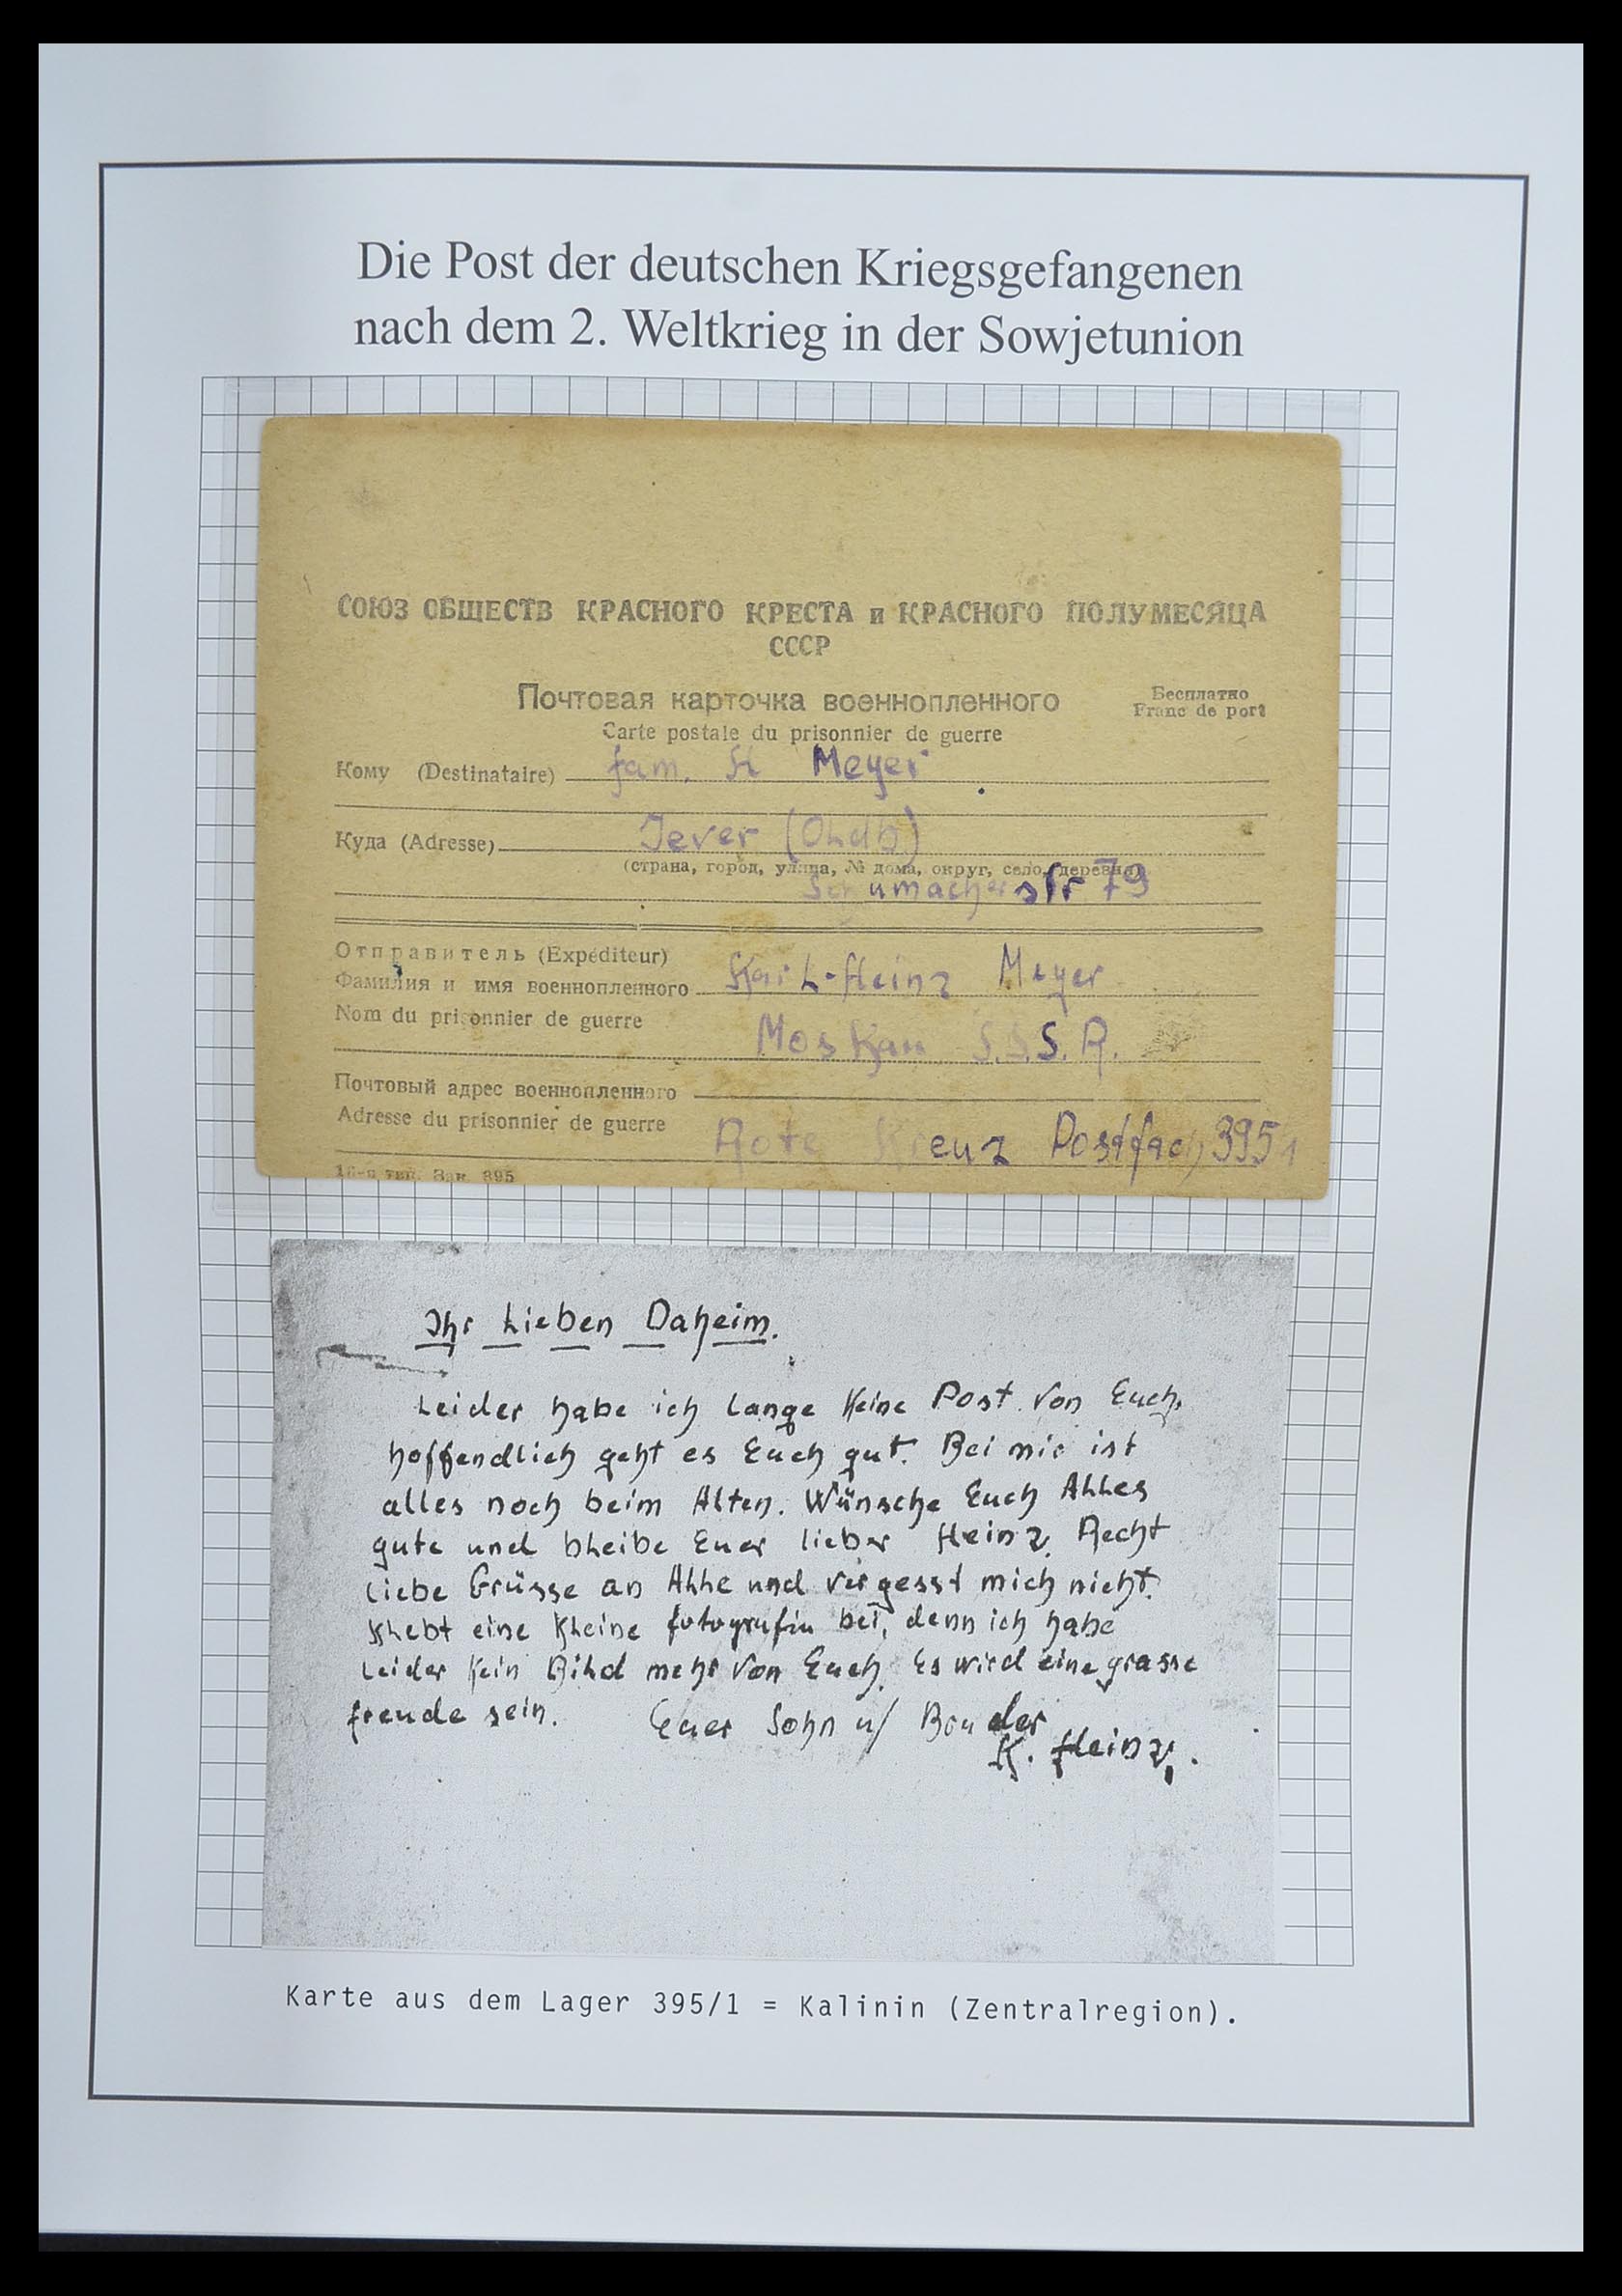 Die Post der deutschen Kriegsgefangenen
nach dem 2. Weltkrieg in der Sowjetunion
СОЮЗ ОБЩЕСТВ КРАСНОГО КРЕСТА и КРАСНОГО ПОЛУМЕСЯЦА
СССР
Почтовая карточка военнопленного
Бесплатно
Franc de port
Carte postale du prisonnier de guerre
Кому (Destinataire) fam. H Meyer
Куда (Adresse) Jever (Oldb)
(страна, город, улица, № дома, округ, село, деревня)
Schumacherstr 79
Отправитель (Expéditeur)
Фамилия и имя военнопленного Karl-Heinz Meyer
Nom du prisonnier de guerre
Moskau S.S.S.R.
Почтовый адрес военнопленного
Adresse du prisonnier de guerre Rote Kreuz Postfach 395/1
16-я тип. Зак. 895
Ihr Lieben Daheim.
Leider habe ich lange keine Post von Euch,
hoffendlich geht es Euch gut. Bei mir ist
alles noch beim Alten. Wünsche Euch Alles
gute und bleibe Euer lieber Heinz. Recht
liebe Grüsse an Alle und vergesst mich nicht.
Klebt eine kleine fotografin bei, denn ich habe
Leider kein Bild mehr von Euch. Es wird eine grosse
freude sein. Euer Sohn u/ Bruder
K. Heinz.
Karte aus dem Lager 395/1 = Kalinin (Zentralregion).